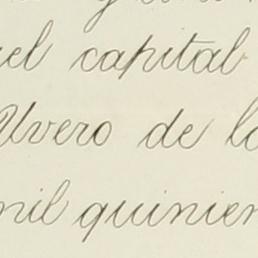 el capital
Uvero de la
mil quinien